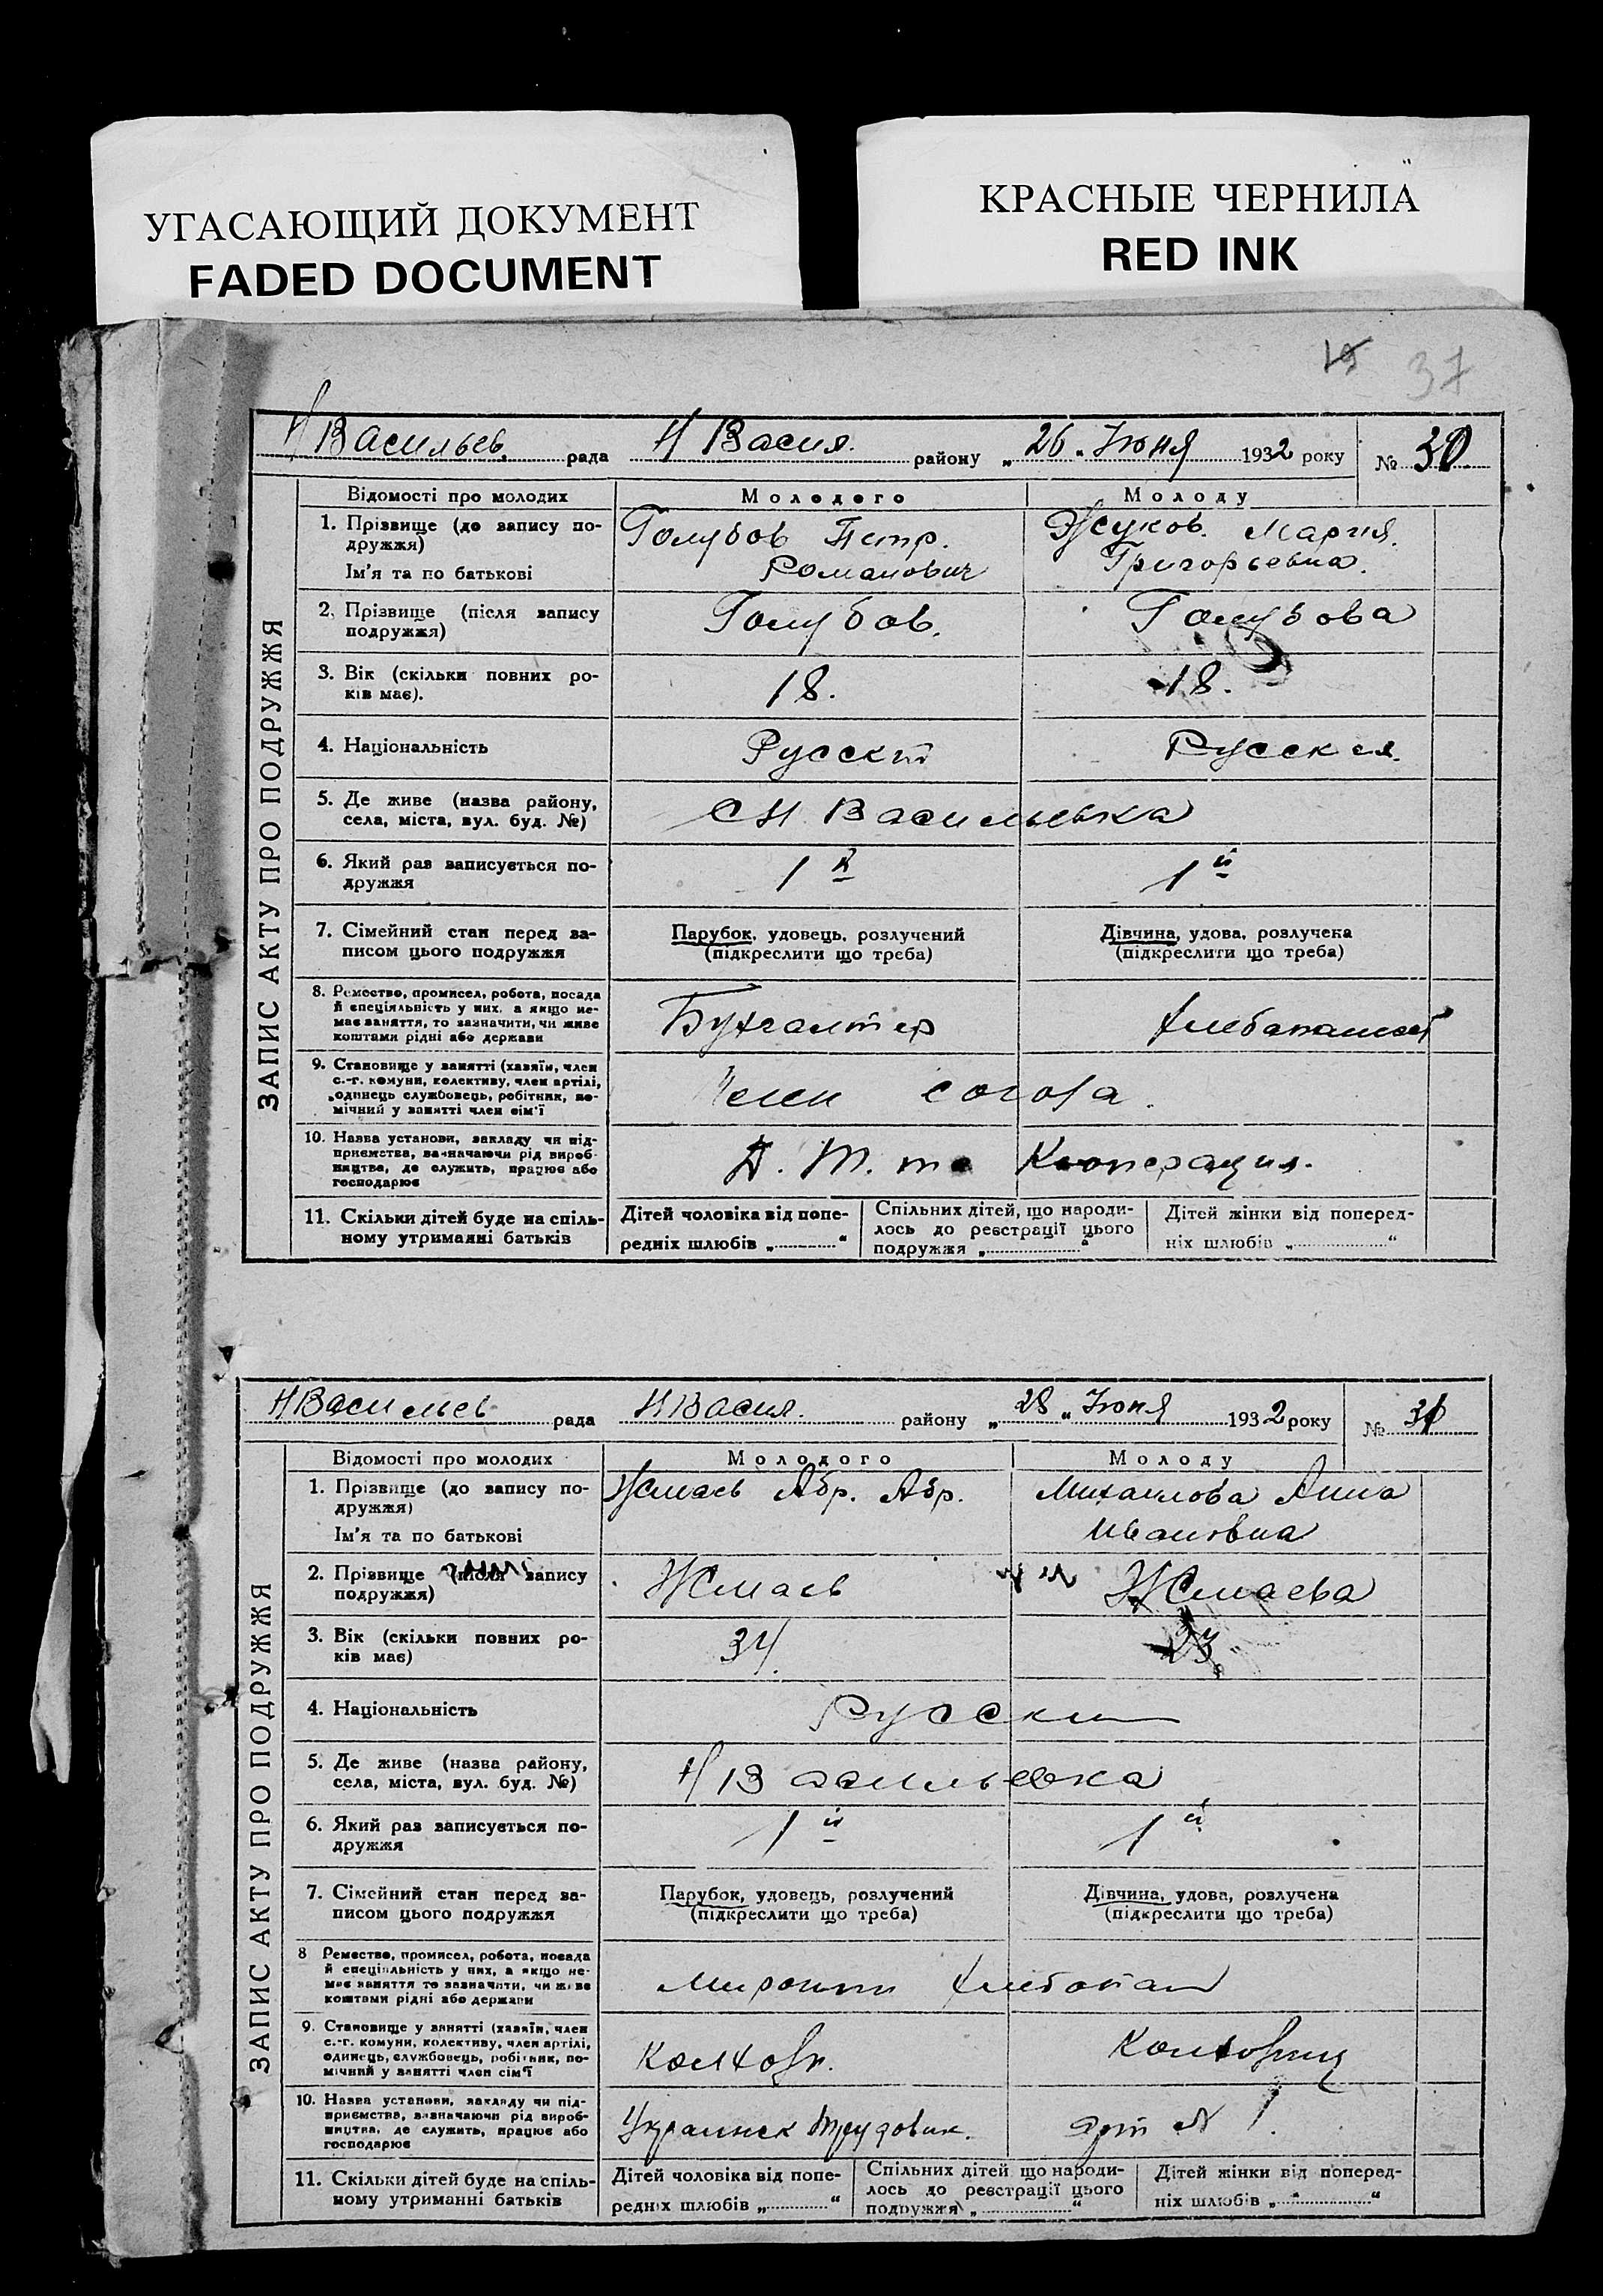 УГАСАЮЩИЙ ДОКУМЕНТ
FADED DOCUMENT
КРАСНЫЕ ЧЕРНИЛА
RED INK
19 37
Н Васильев. рада Н Васил. району „ 26 „ Июня 1932 року № 30
ЗАПИС АКТУ ПРО ПОДРУЖЖЯ
Відомості про молодих Молодого Молоду
1. Прізвище (до запису по-
дружжя)
Ім'я та по батькові
Голубов Петр.
Романович
Жуков. Мария.
Григорьевна.
2. Прізвище (після запису
подружжя)
Голубов. Голубова
3. Вік (скільки повних ро-
ків має).
18. 18.
4. Національність Русский Русская.
5. Де живе (назва району,
села, міста, вул. буд. №)
СН Васильевка
6. Який раз записується по-
дружжя
1й 1й
7. Сімейний стан перед за-
писом цього подружжя
Парубок, удовець, розлучений
(підкреслити що треба)
Дівчина, удова, розлучена
(підкреслити що треба)
8. Ремество, промисел, робота, посада
й спеціяльність у них, а якщо не-
має заняття, то зазначити, чи живе
коштами рідні або держави
Бухгалтер
9. Становище у занятті (хазяїн, член
с.-г. комуни, колективу, член артілі,
одинець службовець, робітник, по-
мічний у занятті член сім'ї
Член союза.
10. Назва установи, закладу чи під-
приємства, зазначаючи рід вироб-
ництва, де служить, працює або
господарює
Кооперация.
11. Скільки дітей буде на спіль-
ному утриманні батьків
Дітей чоловіка від попе-
редніх шлюбів „ “
Спільних дітей, що народи-
лось до реєстрації цього
подружжя „ “
Дітей жінки від поперед-
ніх шлюбів „ “
Н Васильев рада Н Васил. району „ 28 „ Июня 1932 року № 31
ЗАПИС АКТУ ПРО ПОДРУЖЖЯ
Відомості про молодих Молодого Молоду
1. Прізвище (до запису по-
дружжя)
Ім'я та по батькові
Жмаев Абр. Абр.
Михаилова Анна
Ивановна
2. Прізвище (після запису
подружжя)
Жмаев Жмаева
3. Вік (скільки повних ро-
ків має)
34. 23
4. Національність Русски
5. Де живе (назва району,
села, міста, вул. буд. №)
Н Васильевка
6. Який раз записується по-
дружжя
1й 1й
7. Сімейний стан перед за-
писом цього подружжя
Парубок, удовець, розлучений
(підкреслити що треба)
Дівчина, удова, розлучена
(підкреслити що треба)
8 Ремество, промисел, робота, посада
й спеціяльність у них, а якщо не-
має заняття то зазначити, чи живе
коштами рідні або держави
9. Становище у занятті (хазяїн, член
с.-г. комуни, колективу, член артілі,
одинець, службовець, робітник, по-
мічний у занятті член сім'ї
Колхозн. Колхозниц
10. Назва установи, закладу чи під-
приємства, зазначаючи рід вироб-
ництва, де служить, працює або
господарює
Украинск Трудовик. арт № 1.
11. Скільки дітей буде на спіль-
ному утриманні батьків
Дітей чоловіка від попе-
редніх шлюбів „ “
Спільних дітей що народи-
лось до реєстрації цього
подружжя „ “
Дітей жінки від поперед-
ніх шлюбів „ “